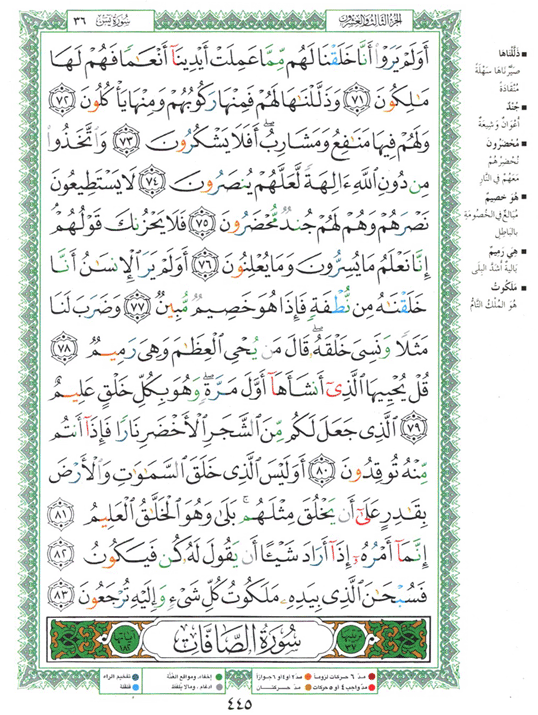 سُورَةُ يسٓ ٣٦
الجُزءُ الثَالثُ والعِشرُون
أَوَلَمْ يَرَوْا۟ أَنَّا خَلَقْنَا لَهُم مِّمَّا عَمِلَتْ أَيْدِينَآ أَنْعَٰمًا فَهُمْ لَهَا
مَٰلِكُونَ ٧١ وَذَلَّلْنَٰهَا لَهُمْ فَمِنْهَا رَكُوبُهُمْ وَمِنْهَا يَأْكُلُونَ ٧٢
وَلَهُمْ فِيهَا مَنَٰفِعُ وَمَشَارِبُ ۖ أَفَلَا يَشْكُرُونَ ٧٣ وَٱتَّخَذُوا۟
مِن دُونِ ٱللَّهِ ءَالِهَةً لَّعَلَّهُمْ يُنصَرُونَ ٧٤ لَا يَسْتَطِيعُونَ
نَصْرَهُمْ وَهُمْ لَهُمْ جُندٌ مُّحْضَرُونَ ٧٥ فَلَا يَحْزُنكَ قَوْلُهُمْ
إِنَّا نَعْلَمُ مَا يُسِرُّونَ وَمَا يُعْلِنُونَ ٧٦ أَوَلَمْ يَرَ ٱلْإِنسَٰنُ أَنَّا
خَلَقْنَٰهُ مِن نُّطْفَةٍ فَإِذَا هُوَ خَصِيمٌ مُّبِينٌ ٧٧ وَضَرَبَ لَنَا
مَثَلًا وَنَسِىَ خَلْقَهُۥ ۖ قَالَ مَن يُحْىِ ٱلْعِظَٰمَ وَهِىَ رَمِيمٌ ٧٨
قُلْ يُحْيِيهَا ٱلَّذِىٓ أَنشَأَهَآ أَوَّلَ مَرَّةٍ ۖ وَهُوَ بِكُلِّ خَلْقٍ عَلِيمٌ
٧٩ ٱلَّذِى جَعَلَ لَكُم مِّنَ ٱلشَّجَرِ ٱلْأَخْضَرِ نَارًا فَإِذَآ أَنتُم
مِّنْهُ تُوقِدُونَ ٨٠ أَوَلَيْسَ ٱلَّذِى خَلَقَ ٱلسَّمَٰوَٰتِ وَٱلْأَرْضَ
بِقَٰدِرٍ عَلَىٰٓ أَن يَخْلُقَ مِثْلَهُم ۚ بَلَىٰ وَهُوَ ٱلْخَلَّٰقُ ٱلْعَلِيمُ ٨١
إِنَّمَآ أَمْرُهُۥٓ إِذَآ أَرَادَ شَيْـًٔا أَن يَقُولَ لَهُۥ كُن فَيَكُونُ ٨٢
فَسُبْحَٰنَ ٱلَّذِى بِيَدِهِۦ مَلَكُوتُ كُلِّ شَىْءٍ وَإِلَيْهِ تُرْجَعُونَ ٨٣
ترتيبها ٣٧ سُورَةُ الصَّافَّاتِ آياتها ١٨٢
ذَلَّلْنَاهَا
صَيَّرْنَاهَا سَهْلَةً
مُنْقَادَةً
جُنْدٌ
أَعْوَانٌ وَشِيعَةٌ
مُحْضَرُونَ
نُحْضِرُهُمْ
مَعَهُمْ فِي النَّارِ
هُوَ خَصِيمٌ
مُبَالِغٌ فِي الخُصُومَةِ
بِالبَاطِلِ
هِيَ رَمِيمٌ
بَالِيَةٌ أَشَدَّ البِلَى
مَلَكُوتُ
هُوَ المُلْكُ التَّامُّ
مدّ ٦ حركات لزوماً مدّ ٢ أو ٤ أو ٦ جوازاً إخفاء، ومواقع الغُنَّة تفخيم الراء
مدّ واجب ٤ أو ٥ حركات مدّ حركتان ادغام، ومالا يُلفظ قلقلة
٤٤٥